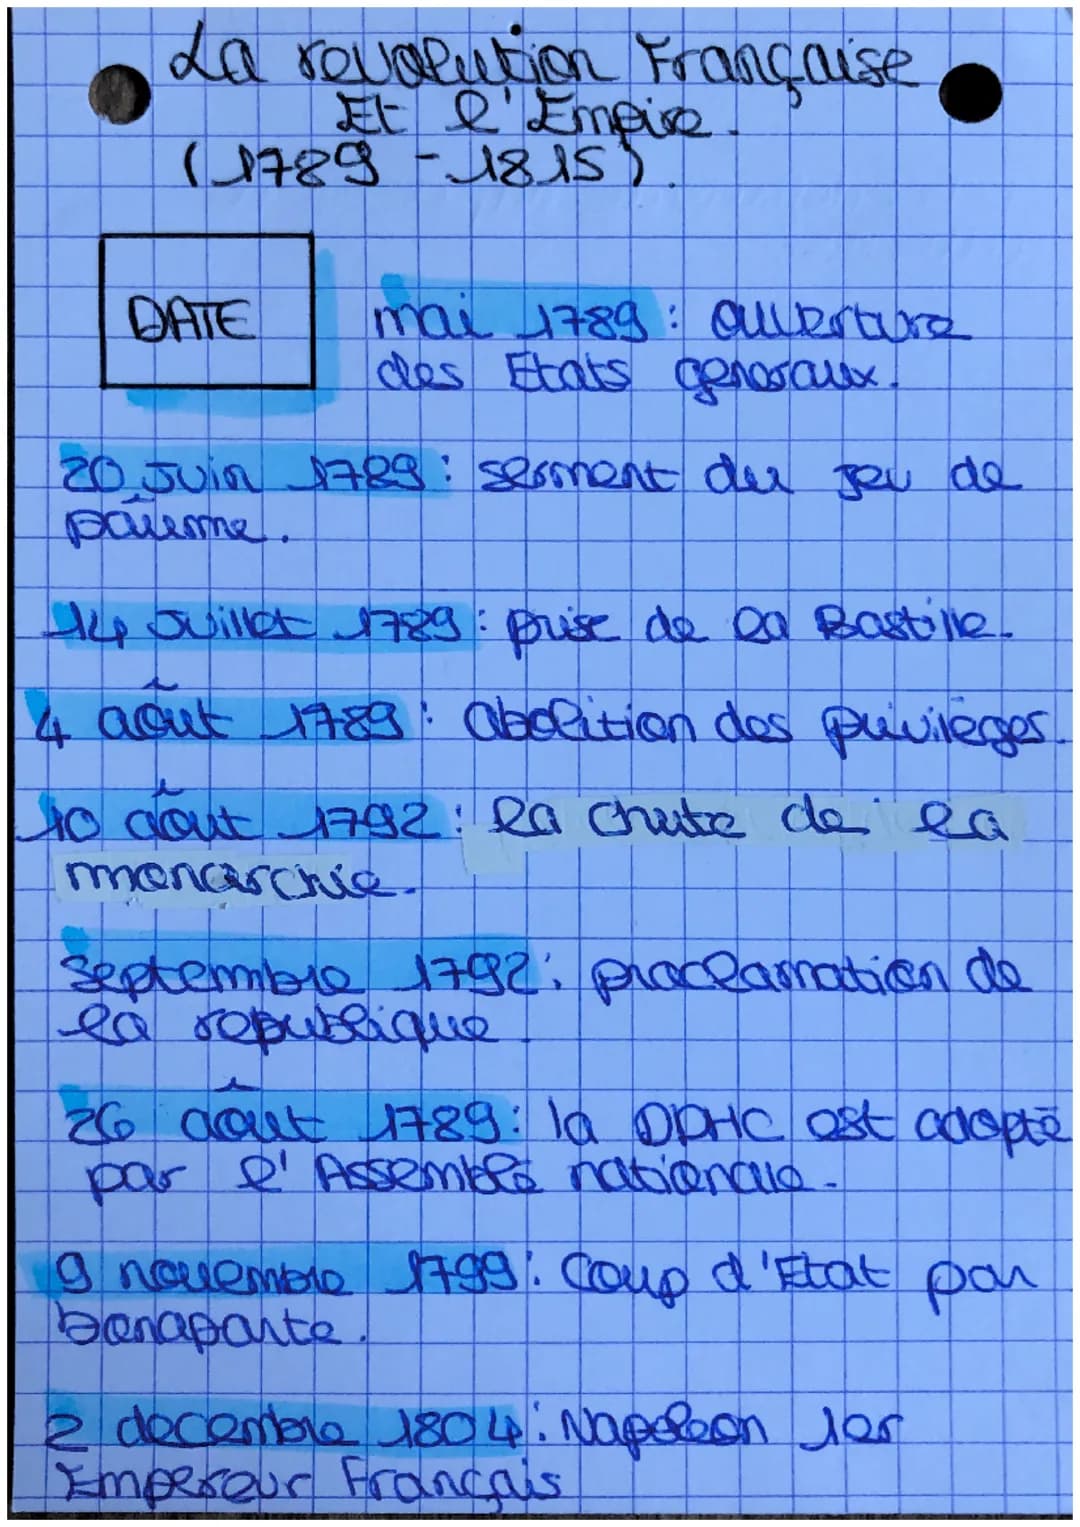 La revolution Française
Et l'Empire.
(1789 - 1815).
DATE
mai 1789 : ouverture
des Etats generaux.
20 Juin 1789 : serment du jeu de
pâume.
14 Juillet 1789 : prise de la Bastille.
4 août 1789 : abolition des privilèges.
10 août 1792 : la chute de la
monarchie.
Septembre 1792 : proclamation de
la republique.
26 août 1789 : la DDHC est adopté
par l'Assemblé nationale.
9 novembre 1799 : Coup d'Etat par
bonaparte.
2 decembre 1804 : Napoleon 1er
Empereur Français